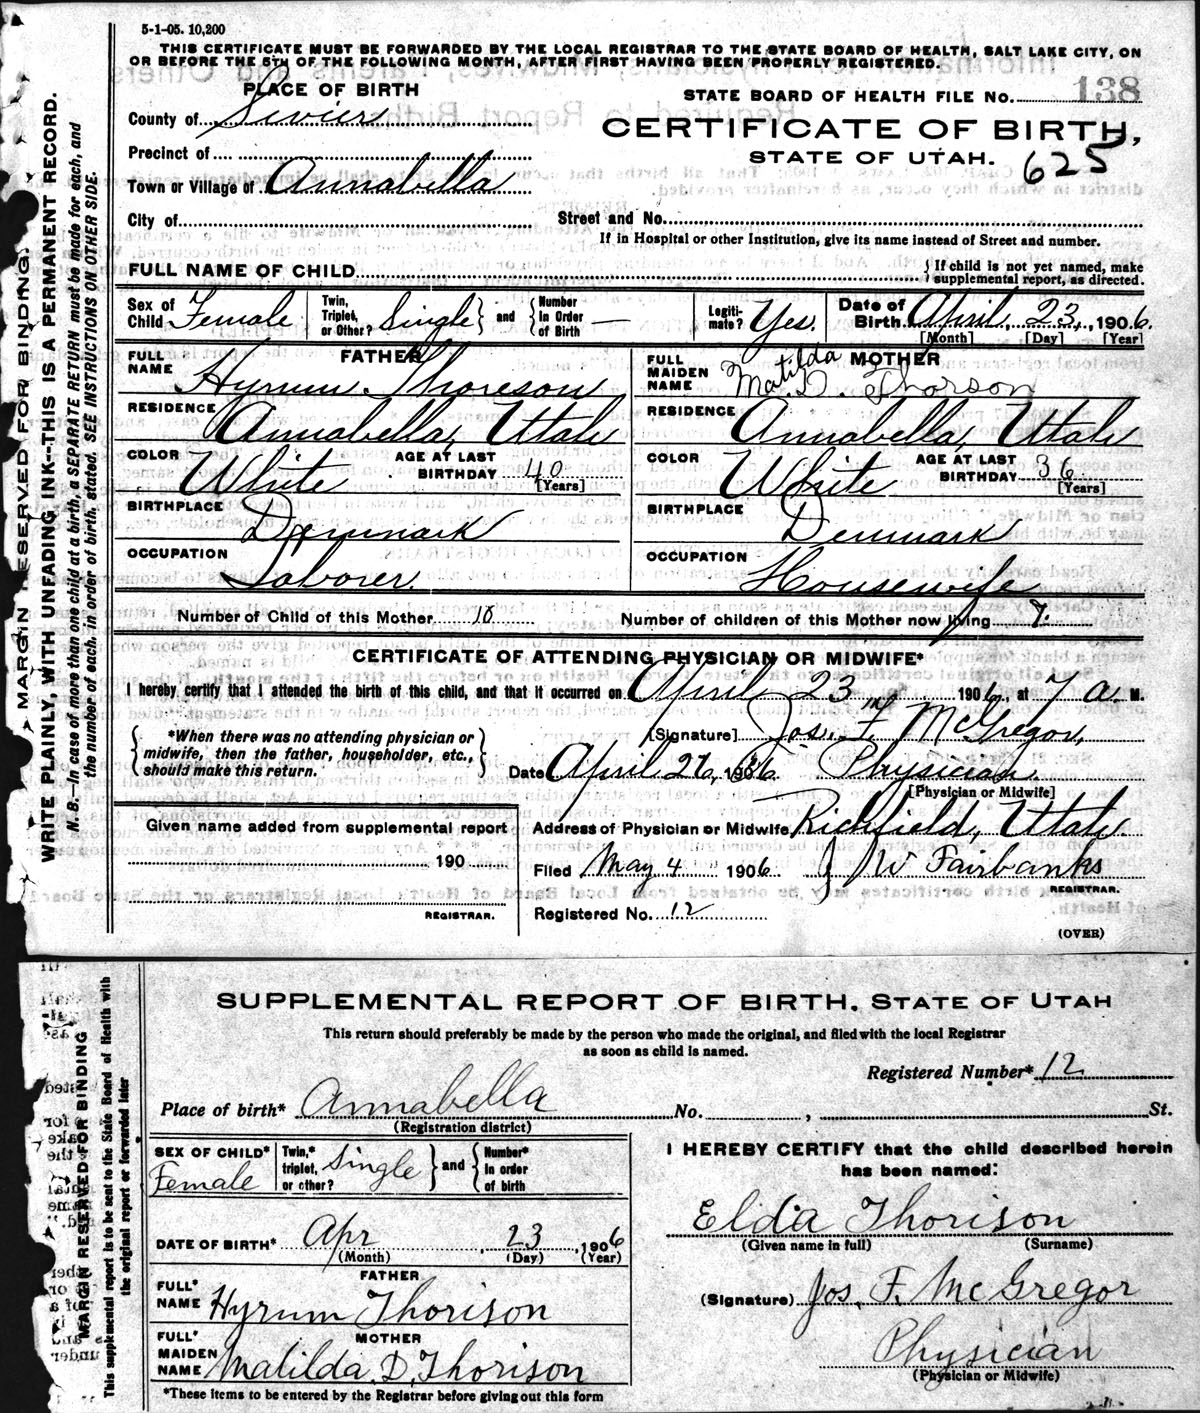 5-1-05. 10,200
THIS CERTIFICATE MUST BE FORWARDED BY THE LOCAL REGISTRAR TO THE STATE BOARD OF HEALTH, SALT LAKE CITY, ON
OR BEFORE THE 5TH OF THE FOLLOWING MONTH, AFTER FIRST HAVING BEEN PROPERLY REGISTERED.
PLACE OF BIRTH
STATE BOARD OF HEALTH FILE No. 138
County of Sivier
CERTIFICATE OF BIRTH,
STATE OF UTAH.
625
Precinct of
Town or Village of Annabella
City of
Street and No.
If in Hospital or other Institution, give its name instead of Street and number.
FULL NAME OF CHILD
} If child is not yet named, make
supplemental report, as directed.
Sex of Child Female
Twin, Triplet, or Other? Single } and { Number in Order of Birth —
Legitimate? Yes.
Date of Birth April, 23, 1906.
[Month] [Day] [Year]
FATHER
FULL NAME Hyrum Thoreson
RESIDENCE Annabella, Utah
COLOR White AGE AT LAST BIRTHDAY 40 [Years]
BIRTHPLACE Denmark
OCCUPATION Laborer.
MOTHER
FULL MAIDEN NAME Matilda
Mat. D. Thorson
RESIDENCE Annabella, Utah
COLOR White AGE AT LAST BIRTHDAY 36 [Years]
BIRTHPLACE Denmark
OCCUPATION Housewife
Number of Child of this Mother 10 Number of children of this Mother now living 7.
CERTIFICATE OF ATTENDING PHYSICIAN OR MIDWIFE*
I hereby certify that I attended the birth of this child, and that it occurred on April 23 1906, at 7 a. M.
{ *When there was no attending physician or
midwife, then the father, householder, etc.,
should make this return. }
[Signature] Jos. F. McGregor,
Date April 26, 1906 Physician.
[Physician or Midwife]
Given name added from supplemental report
190
REGISTRAR.
Address of Physician or Midwife Richfield, Utah.
Filed May 4 1906 J W Fairbanks
REGISTRAR.
Registered No. 12
(OVER)
MARGIN RESERVED FOR BINDING.
WRITE PLAINLY, WITH UNFADING INK--THIS IS A PERMANENT RECORD.
N. B.—In case of more than one child at a birth, a SEPARATE RETURN must be made for each, and
the number of each, in order of birth, stated. SEE INSTRUCTIONS ON OTHER SIDE.
SUPPLEMENTAL REPORT OF BIRTH, STATE OF UTAH
This return should preferably be made by the person who made the original, and filed with the local Registrar
as soon as child is named.
Registered Number* 12
Place of birth* Annabella No. , St.
(Registration district)
SEX OF CHILD* Female
Twin,* triplet, or other? Single } and { Number* in order of birth
DATE OF BIRTH* Apr , 23 , 1906
(Month) (Day) (Year)
FATHER
FULL* NAME Hyrum Thorison
MOTHER
FULL* MAIDEN NAME Matilda D. Thorison
*These items to be entered by the Registrar before giving out this form
I HEREBY CERTIFY that the child described herein
has been named:
Elda Thorison
(Given name in full) (Surname)
(Signature) Jos. F. McGregor
Physician
(Physician or Midwife)
MARGIN RESERVED FOR BINDING
This supplemental report is to be sent to the State Board of Health with
the original report or forwarded later